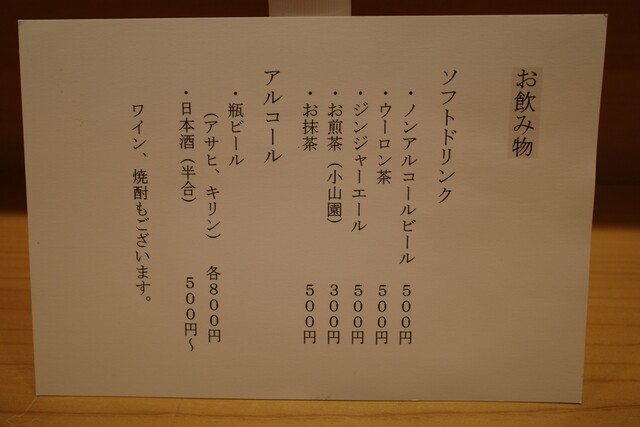 お飲み物
ソフトドリンク
・ノンアルコールビール　５００円
・ウーロン茶　５００円
・ジンジャーエール　５００円
・お煎茶（小山園）　３００円
・お抹茶　５００円
アルコール
・瓶ビール
（アサヒ、キリン）　各８００円
・日本酒（半合）　５００円～
ワイン、焼酎もございます。